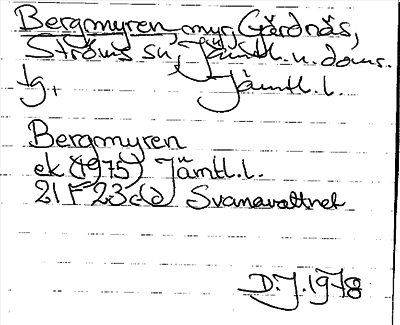 Bergmyren, myr, Gärdnäs,
Ströms sn, Jämtl. n. doms.
tg, Jämtl. l.
Bergmyren
ek (1975) Jämtl. l.
21 F 23cd Svanavattnet
D. J. 1978